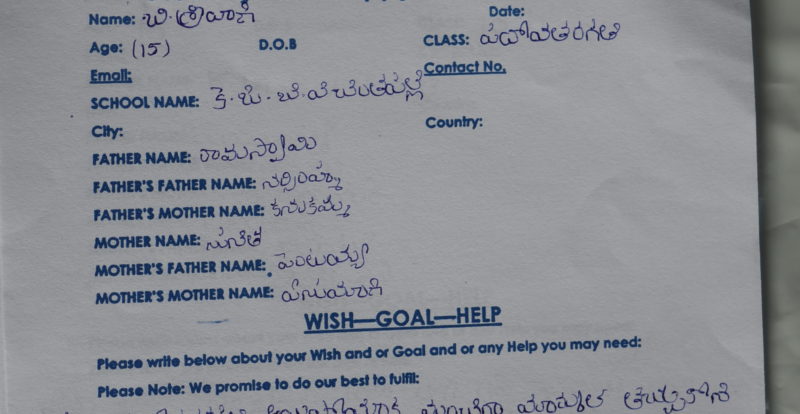 Name: బి. శ్రీవాణి Date:
Age: (15) D.O.B CLASS: పదోవతరగతి
Email: Contact No.
SCHOOL NAME: కె. జి. బి. వి చింతపల్లి
City: Country:
FATHER NAME: రామస్వామి
FATHER'S FATHER NAME: నర్సింహ్మ
FATHER'S MOTHER NAME: కనుకమ్మ
MOTHER NAME: సునీత
MOTHER'S FATHER NAME: పెంటయ్య
MOTHER'S MOTHER NAME:
WISH—GOAL—HELP
Please write below about your Wish and or Goal and or any Help you may need:
Please Note: We promise to do our best to fulfil: